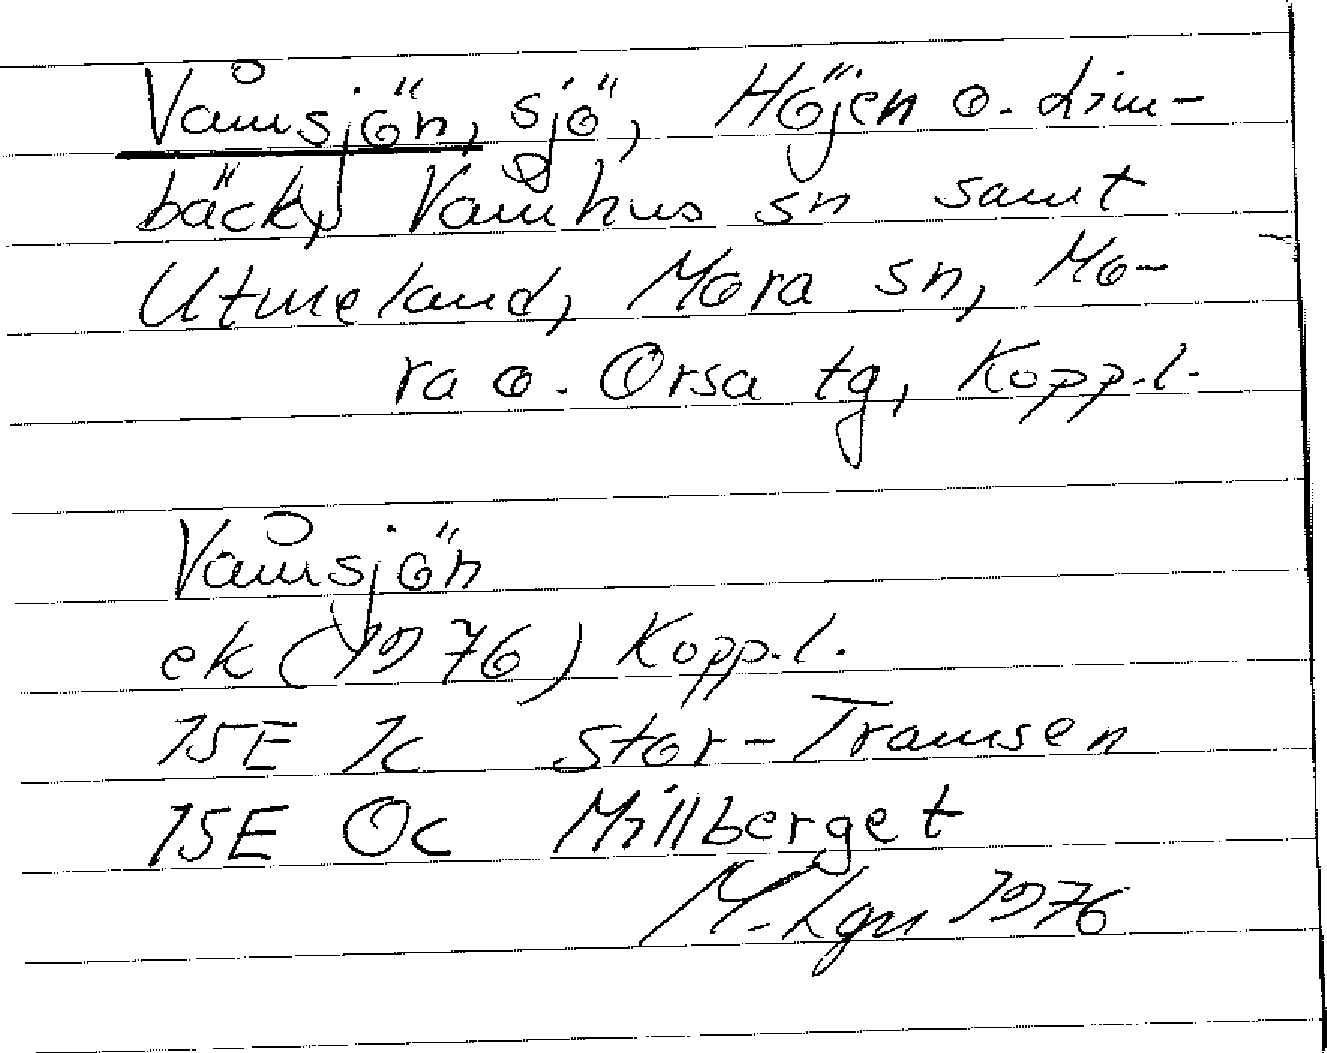 Våmsjön, sjö, Höjen o. Lim-
bäck, Våmhus sn samt
Utmeland, Mora sn, Mo-
ra o. Orsa tg, Kopp.l.
Våmsjön
ek (1976) Kopp.l.
15E 1c Stor-Tramsen
15E 0c Millberget
M. Lgn 1976